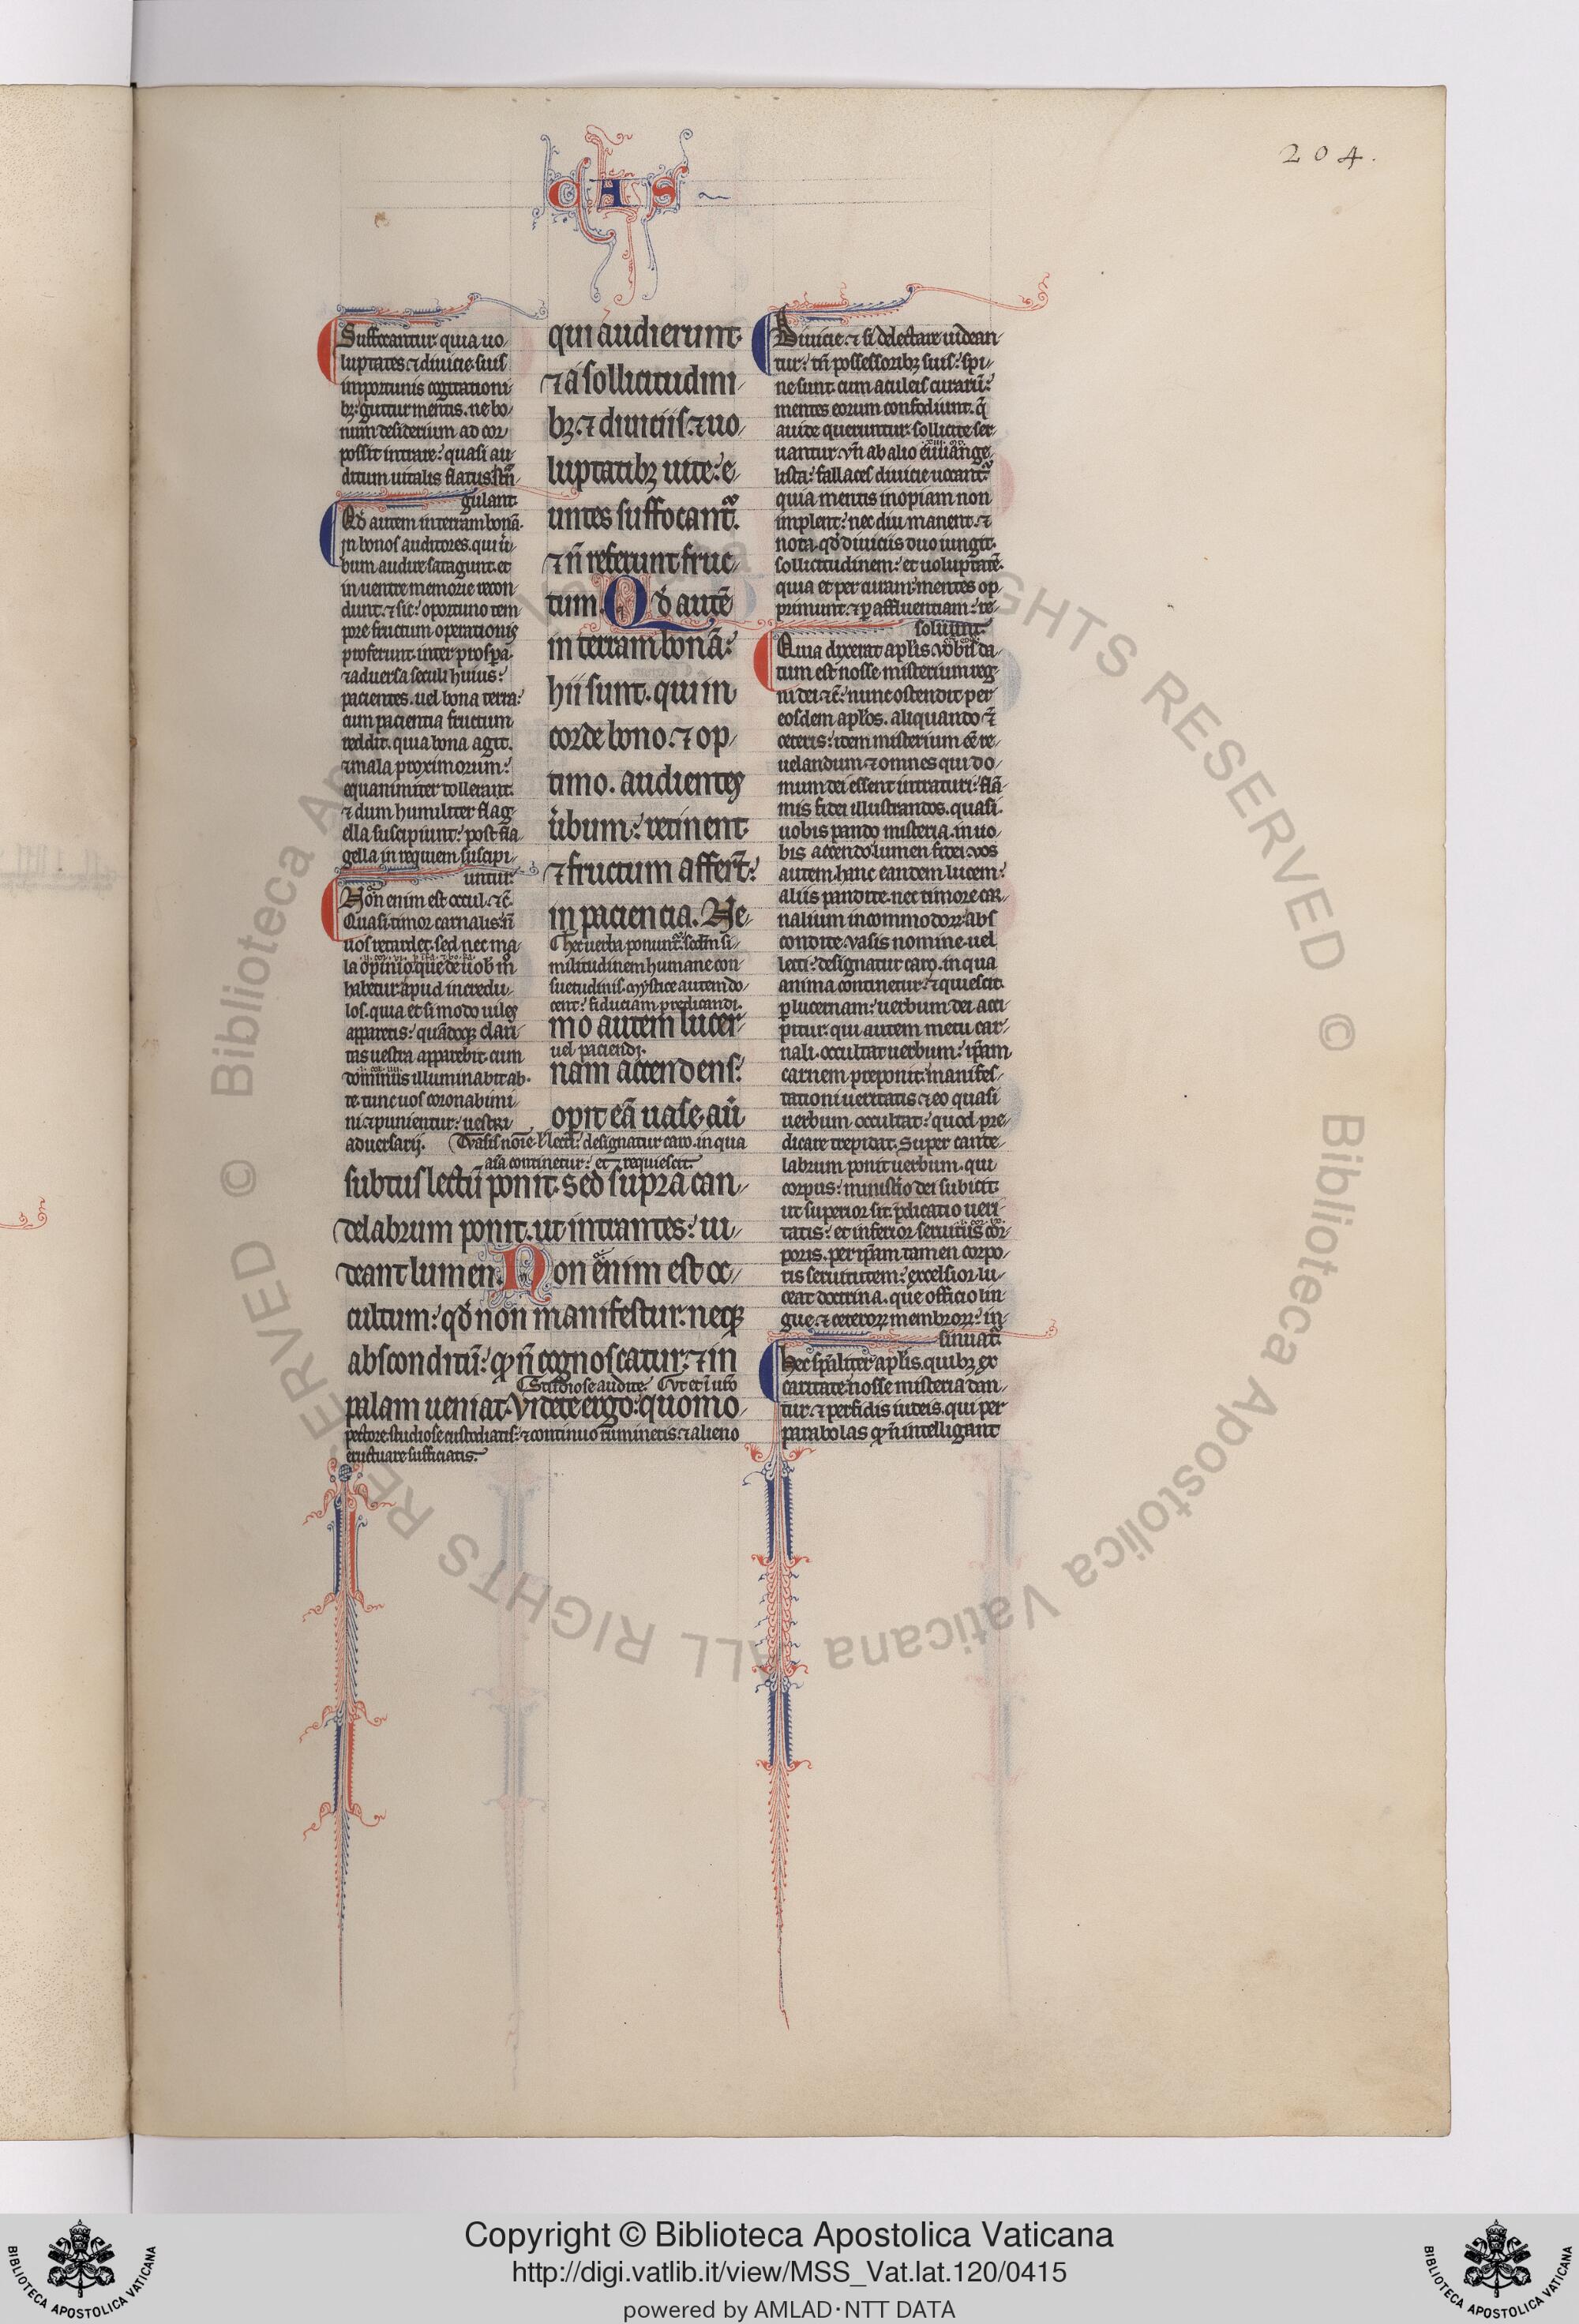 204.
CAS
Suffocantur. quia uo-
luptates ⁊ diuicie. suis
importunis cogitationi-
bꝫ: guttur mentis. ne bo-
num desiderium ad cor
possit intrare: quasi au-
ditum uitalis flatus stn̄-
gulant.
Qd̓ autem in terram bonā.
jn bonos auditores. qui u̓-
bum audire satagunt. et
in uentre memorie recon-
dunt. ⁊ sic: oportuno tem-
pre fructum operationis
proferunt. inter prosꝑa.
⁊ aduersa seculi huius:
pacientes. uel bona terra:
cum pacientia fructum
reddit. quia bona agit.
⁊ mala proximorum:
equanimiter tollerant.
⁊ dum humiliter flag-
ella suscipiunt: post fla-
gella in requiem suscipi-
untur.
Non enim est occul. ⁊c̄.
Quasi. timor carnalis: n̄
uos retardet. sed nec ma-
la opinio. que de uob̓ m̊
habetur apud incredu-
los. quia et si modo uiles
apparetis: quādoqꝫ clari-
tas uestra apparebit. cum
dominus illuminabit ab-
te. tunc uos coronabimi-
ni: ⁊ punientur: uestri
aduersarij.
qui audierunt.
⁊ á sollicitudini-
bꝫ. ⁊ diuiciis. ⁊ uo-
luptatibꝫ uite: e-
untes suffocant᷑.
⁊ n̄ referunt fruc-
tum. Qd̓ autē
in terram bonā:
hii sunt. qui in
corde bono. ⁊ op-
timo. audientes
u̓bum: retinent.
⁊ fructum affer̄t:
in paciencia. Ne-
Hec uerba ponunt᷑. scdm̄ si-
militudinem humane con-
suetudinis. Mystice autem do-
cent: fiduciam predicandi.
mo autem lucer-
uel paciendi.
nam accendens:
opit eā uase. aū
Vasis noīe ł lecti: designatur caro. in qua
aīa continetur: et requiescit.
subtus lectū ponit. Sed supra can-
delabrum ponit. ut intrantes: ui-
deant lumen. Non enim est oc-
cultum: qd̓ non manifestur: neqꝫ
absconditū: qd̓ n̄ cognoscatur. ⁊ in
Studiose audite. Vt et ī ur̄o
palam ueniat. Videte ergo: quomo-
pectore studiose custodiatis: ⁊ continuo ruminetis. ⁊ alieno
eructuare sufficiatis.
Diuicie. ⁊ si delectare uidean-
tur: tn̄ possessoribꝫ suis: spi-
ne sunt. cum aculeis curarū:
mentes eorum confodiunt. q̄
auide queruntur. sollicite ser-
uantur. Vn̄ ab alio euuange-
lista: fallaces diuicie uocant᷑.
quia mentis inopiam non
implent: nec diu manent. ⁊
nota. qd̓ diuiciis duo iungit.
sollicitudinem: et uoluptatē.
quia et per curam: mentes op-
primunt. ⁊ ꝑ affluentiam: re-
soluunt.
Quia dixerat apl̓is. Vobis da-
tum est nosse misterium reg-
ni dei ⁊c̄: nunc ostendit per
eosdem apl̓os. aliquando ⁊
ceteris: item misterium eē re-
uelandum. ⁊ omnes qui do-
mum dei essent intraturi: flā-
mis fidei illustrandos. quasi.
uobis pando misteria. in uo-
bis accendo lumen fidei. Vos
autem. hanc eandem lucem:
aliis pandite. nec timore car-
nalium incommodoꝝ: abs-
condite. Vasis nomine. uel
lecti: designatur caro. in qua
anima continetur. ⁊ quiescit.
ꝑ lucernam: uerbum dei acci-
pitur. qui autem metu car-
nali. occultat uerbum: ip̄am
carnem preponit manifes-
tationi ueritatis. ⁊ eo quasi
uerbum occultat: quod pre-
dicare trepidat. Super cande-
labrum ponit uerbum. qui
corpus: ministerio dei subicit.
ut superior sit. p̄dicatio ueri-
tatis: et inferior seruitus cor-
poris. per ip̄am tamen corpo-
ris seruitutem: excelsior lu-
ceat doctrina. que officio lin-
gue. ⁊ ceteroꝝ membroꝝ: in-
sinuat᷑.
Hec sp̄aliter apl̓is. quibꝫ ex
caritate. nosse misteria dan-
tur. ⁊ perfidis iudeis. qui per
parabolas qd̓ n̄ intelligant
Copyright © Biblioteca Apostolica Vaticana
http://digi.vatlib.it/view/MSS_Vat.lat.120/0415
powered by AMLAD·NTT DATA
BIBLIOTECA APOSTOLICA VATICANA
BIBLIOTECA APOSTOLICA VATICANA
© Biblioteca Apostolica Vaticana ALL RIGHTS RESERVED © Biblioteca Apostolica Vaticana ALL RIGHTS RESERVED